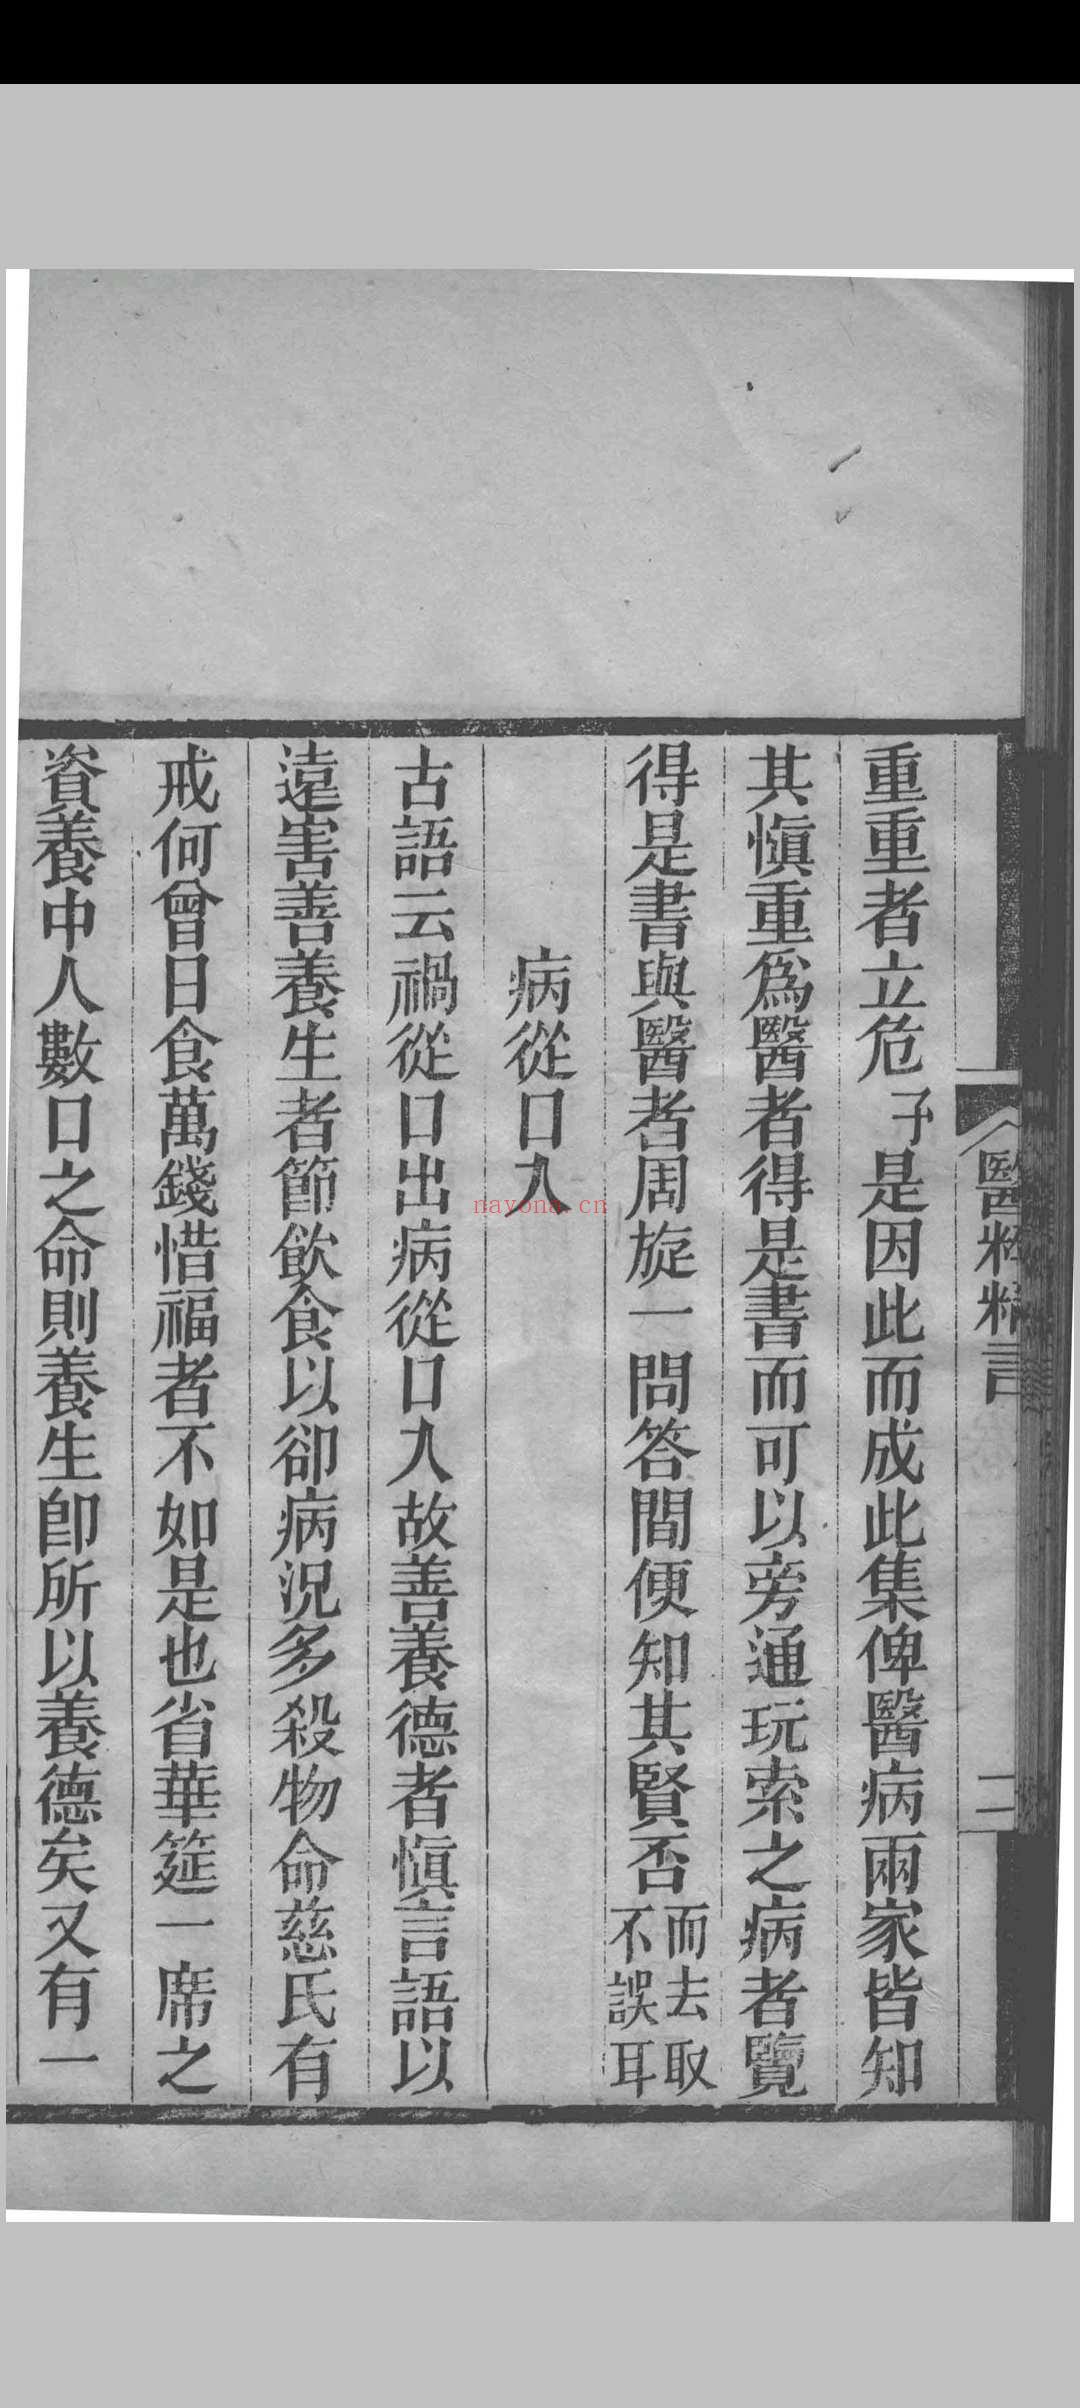 醫粹精言
二
重重者立危子是因此而成此集俾醫病兩家皆知
其愼重爲醫者得是書而可以旁通玩索之病者覽
得是書與醫者周旋一問答間便知其賢否而去取不誤耳
病從口入
古語云禍從口出病從口入故善養德者愼言語以
遠害善養生者節飲食以卻病況多殺物命慈氏有
戒何曾日食萬錢惜福者不如是也省華筵一席之
資養中人數口之命則養生卽所以養德矣又有一
nayona.cn